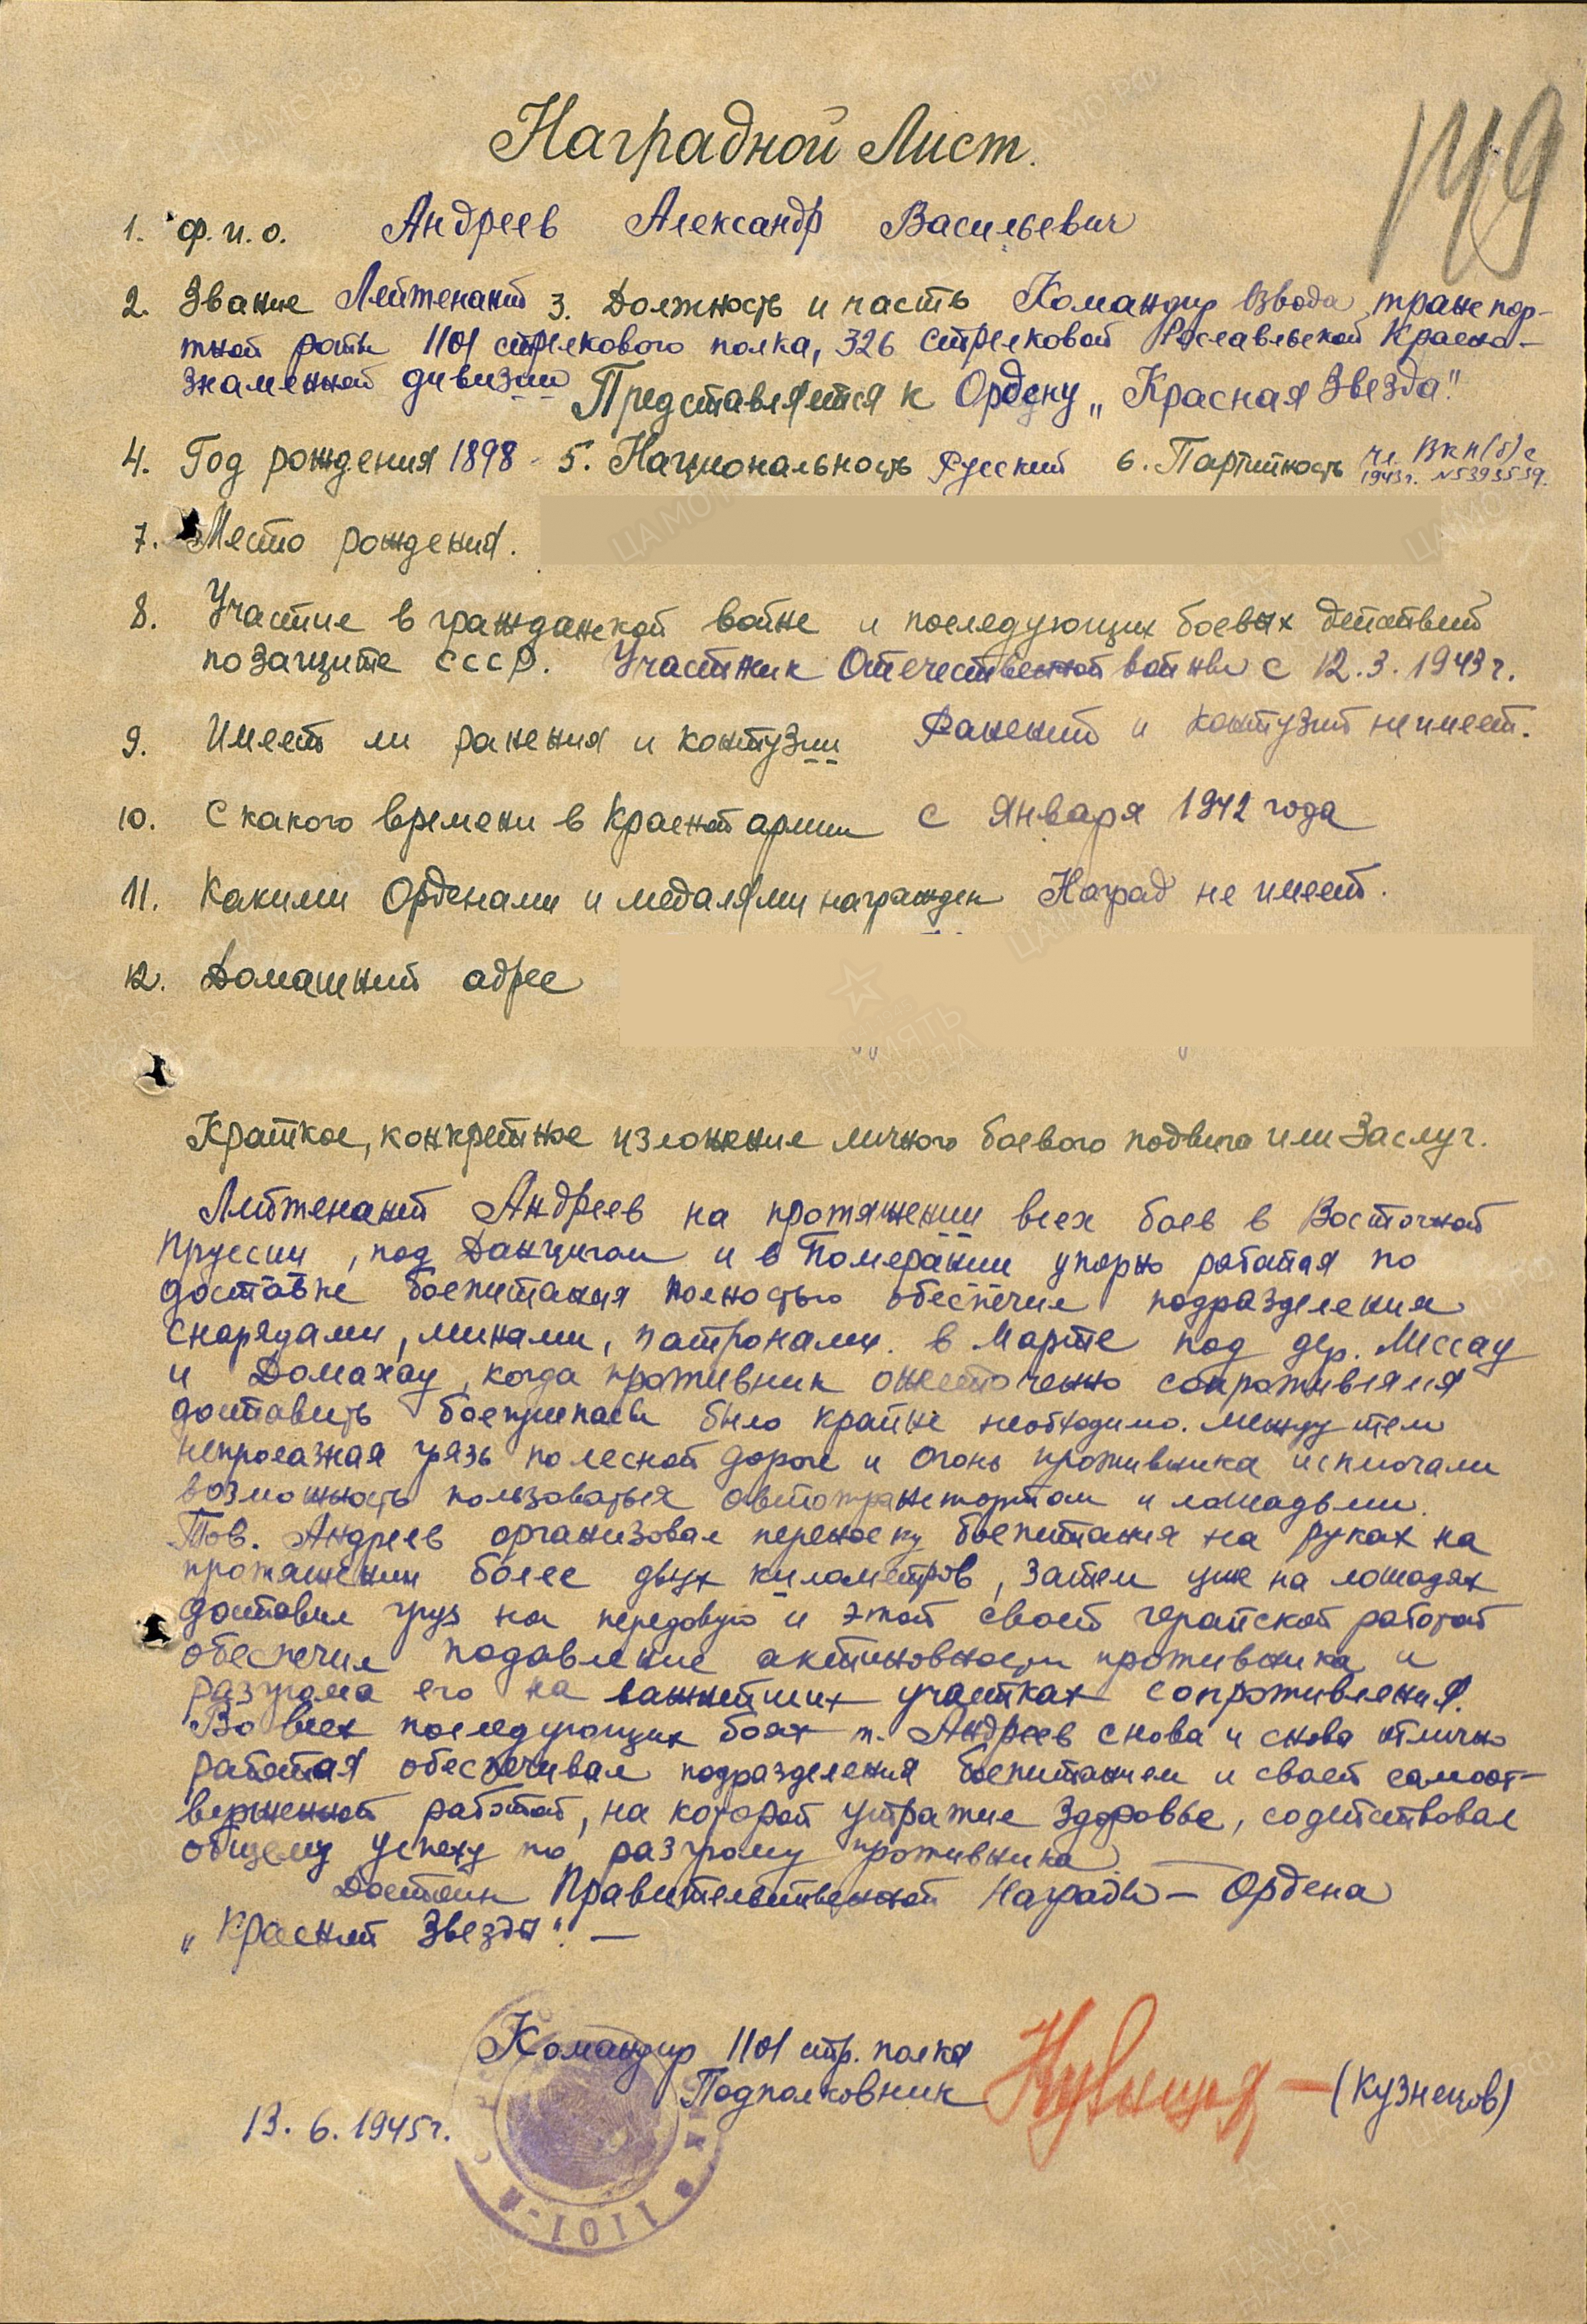 149
Наградной Лист.
1. Ф.и.о. Андреев Александр Васильевич
2. Звание Лейтенант 3. Должность и часть Командир взвода транспор-
тной роты 1101 стрелкового полка, 326 стрелковой Рославльской Красно-
знаменной дивизии Представляется к Ордену „Красная Звезда"
4. Год рождения 1898 5. Национальность Русский 6. Партийность чл. ВКП(б) с
1943г. №5393539.
7. Место рождения.
8. Участие в гражданской войне и последующих боевых действий
по защите СССР. Участник Отечественной войны с 12.3.1943г.
9. Имеет ли ранения и контузии Ранений и контузий не имеет.
10. С какого времени в Красной армии С января 1942 года
11. Какими Орденами и медалями награжден Наград не имеет.
12. Домашний адрес
Краткое, конкретное изложение личного боевого подвига или Заслуг.
Лейтенант Андреев на протяжении всех боев в Восточной
Пруссии, под Данцигом и в Померании упорно работая по
доставке боепитания полностью обеспечил подразделения
снарядами, минами, патронами. В Марте под дер. Мессау
и Домахау, когда противник ожесточенно сопротивлялся
доставить боеприпасы было крайне необходимо. Между тем
непролазная грязь по лесной дороге и огонь противника исключали
возможность пользоваться автотранспортом и лошадьми.
Тов. Андреев организовал переноску боепитания на руках на
протяжении более двух километров, затем уже на лошадях
доставил груз на передовую и этой своей геройской работой
обеспечил подавление активновности противника и
разгрома его на важнейших участках сопротивления.
Во всех последующих боях т. Андреев снова и снова отлично
работая обеспечивал подразделения боепитанием и своей самоот-
верженной работой, на которой утратил здоровье, содействовал
общему успеху по разгрому противника.
Достоин Правительственной Награды — Ордена
„Красной Звезды". —
Командир 1101 стр. полка
Подполковник — (Кузнецов)
13. 6. 1945г.
1101-Й